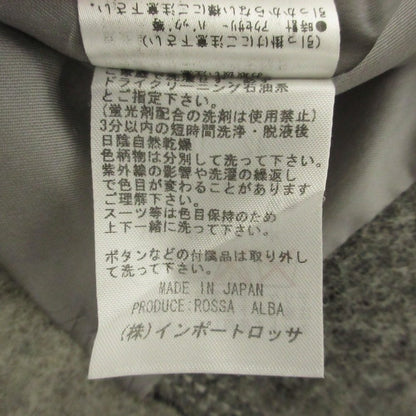 ●時計 アクセサリー バッグ等
(引っ掛けにご注意下さい)
引っかからない様に
ご注意下さい
ドライクリーニング石油系
とご指定下さい。
(蛍光剤配合の洗剤は使用禁止)
3分以内の短時間洗浄・脱液後
日陰自然乾燥
色柄物は分別して洗って下さい。
紫外線の影響や洗濯の繰返し
で色目が変わることがあります
ご理解下さい。
スーツ等は色目保持のため
上下一緒に洗って下さい。
ボタンなどの付属品は取り外し
て洗って下さい。
MADE IN JAPAN
PRODUCE:ROSSA ALBA
(株)インポートロッサ